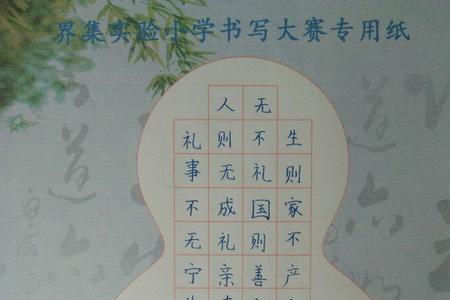 界集实验小学书写大赛专用纸
人无
礼则不生
事无礼则
不成国家
无礼则不
宁亲善产